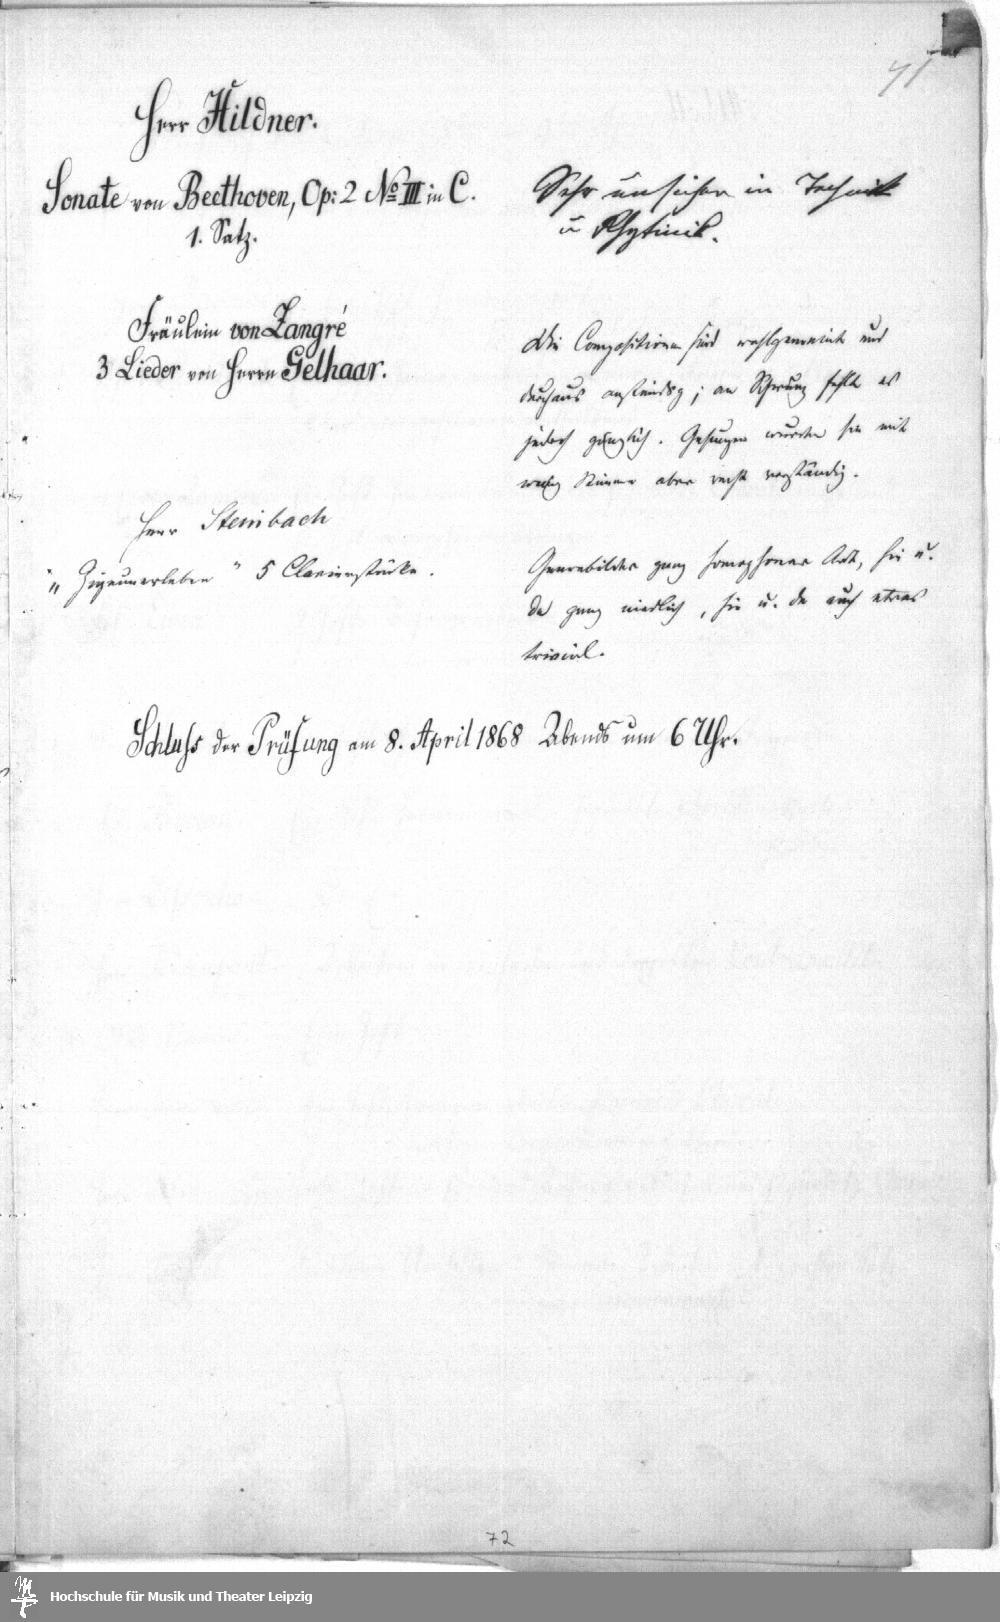 71
Herr Hildner.
Sonate von Beethoven, Op: 2 No III in C.
1. Satz.
Sehr unsicher in Technik
u Rhytmik.
Fräulein von Zangré
3 Lieder von Herrn Gelhaar.
Die Compositionen sind wohlgemeint und
durchaus anständig; an Schwung fehlt es
jedoch gänzlich. Gesungen wurden sie mit
wenig Stimme aber recht verständig.
Herr Steinbach
"Zigeunerleben" 5 Clavierstücke.
Genrebilder ganz homophoner Art, hie u.
da ganz niedlich, hie u. da auch etwas
trivial.
Schluss der Prüfung am 8. April 1868 Abends um 6 Uhr.
72
Hochschule für Musik und Theater Leipzig